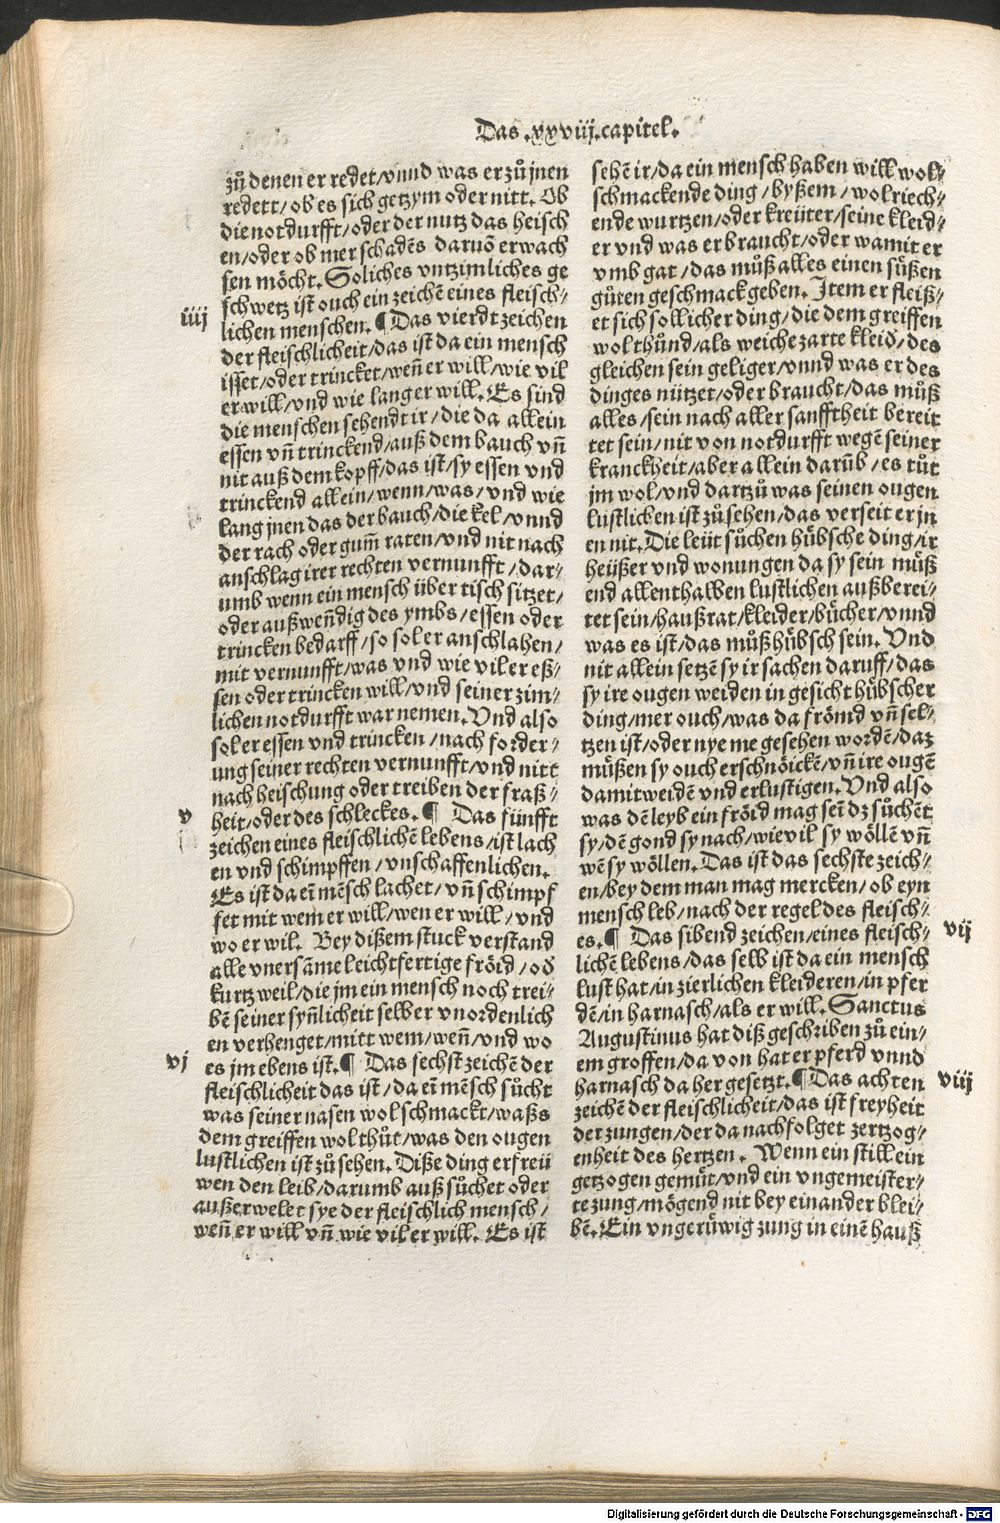 Das .xxviij. capitel.
zů denen er redet/vnnd was er zů jnen
redett/ob es sich getzym oder nitt. Ob
die notdurfft/oder der nutz das heisch
en/oder ob mer schadẽs daruõ erwach
sen möcht. Soliches vntzimliches ge
schwetz ist ouch ein zeichẽ eines fleisch/
iiij
lichen menschen. ¶ Das vierdt zeichen
der fleischlicheit/das ist da ein mensch
isset/oder trincket/wen̄ er will/wie vil
er will/vnd wie lang er will. Es sind
die menschen sehendt ir/die da allein
essen vn̄ trinckend/auß dem bauch vn̄
nit auß dem kopff/das ist/sy essen vnd
trinckend allein/wenn/was/vnd wie
lang jnen das der bauch/die kel/vnnd
der rach oder gum̄ raten/vnd nit nach
anschlag irer rechten vernunfft/dar/
umb wenn ein mensch über tisch sitzet/
oder außwen̄dig des ymbs/essen oder
trincken bedarff/so sol er anschlahen/
mit vernunfft/was vnd wie vil er eß/
sen oder trincken will/vnd seiner zim/
lichen notdurfft war nemen. Vnd also
sol er essen vnd trincken/nach forder/
ung seiner rechten vernunfft/vnd nitt
nach heischung oder treiben der fraß/
v
heit/oder des schleckes. ¶ Das fünfft
zeichen eines fleischlichẽ lebens/ist lach
en vnd schimpffen/vnschaffenlichen.
Es ist da eī mẽsch lachet/vn̄ schimpf
fet mit wem er will/wen er will/vnd
wo er wil. Bey dißem stuck verstand
alle vnersãme leichtfertige fröid/oď
kurtzweil/die jm ein mensch noch trei/
bẽ seiner syn̄licheit selber vnordenlich
en verhenget/mitt wem/wen̄/vnd wo
vj
es jm ebens ist. ¶ Das sechst zeichẽ der
fleischlicheit das ist/da eī mẽsch sůcht
was seiner nasen wol schmackt/waßs
dem greiffen wol thůt/was den ougen
lustlichen ist zů sehen. Diße ding erfreü
wen den leib/darumb auß sůchet oder
außerwelet sye der fleischlich mensch/
wen̄ er will vn̄ wie vil er will. Es ist
sehẽ ir/da ein mensch haben will wol/
schmackende ding/byßem/wolriech/
ende wurtzen/oder kreüter/seine kleid/
er vnd was er braucht/oder wamit er
vmb gat/das můß alles einen süßen
gůten geschmack geben. Item er fleiß/
et sich sollicher ding/die dem greiffen
wol thůnd/als weiche zarte kleiď/des
gleichen sein geliger/vnnd was er des
dinges nützet/oder braucht/das můß
alles/sein nach aller sanfftheit bereit
tet sein/nit von notdurfft wegẽ seiner
kranckheit/aber allein darũb/es tůt
jm wol/vnd dartzů was seinen ougen
lustlichen ist zů sehen/das verseit er jn
en nit. Die leüt sůchen hübsche ding/ir
heüßer vnd wonungen da sy sein můß
end allenthalben lustlichen außberei/
tet sein/haußrat/kleider/bücher/vnnd
was es ist/das můß hübsch sein. Vnd
nit allein setzẽ sy ir sachen daruff/das
sy ire ougen weiden in gesicht hübscher
ding/mer ouch/was da frömd vn̄ sel/
tzen ist/oder nye me gesehen wordẽ/daz
müßen sy ouch erschnöickẽ/vn̄ ire ougẽ
damit weiden vnd erlustigen. Vnd also
was dẽ leyb ein fröid mag sein̄ dz sůchẽt
sy/dẽ gond sy nach/wie vil sy wöllẽ vn̄
wẽ sy wöllen. Das ist das sechste zeich/
en/bey dem man mag mercken/ob eyn
mensch leb/nach der regel des fleisch/
vij
es. ¶ Das sibend zeichen/eines fleisch/
lichẽ lebens/das selb ist da ein mensch
lust hat/in zierlichen kleideren/in pfer
dẽ/in harnasch/als er will. Sanctus
Augustinus hat diß geschriben zů ein/
em groffen/da von hat er pferd vnnd
viij
harnasch da her gesetzt. ¶ Das achten
zeichẽ der fleischlicheit/das ist freyheit
der zungen/der da nachfolget zertzog/
enheit des hertzen. Wenn ein still ein
getzogen gemüt/vnd ein vngemeister/
te zung/mögend nit bey einander blei/
bẽ. Ein vngerüwig zung in einẽ hauß
Digitalisierung gefördert durch die Deutsche Forschungsgemeinschaft - DFG